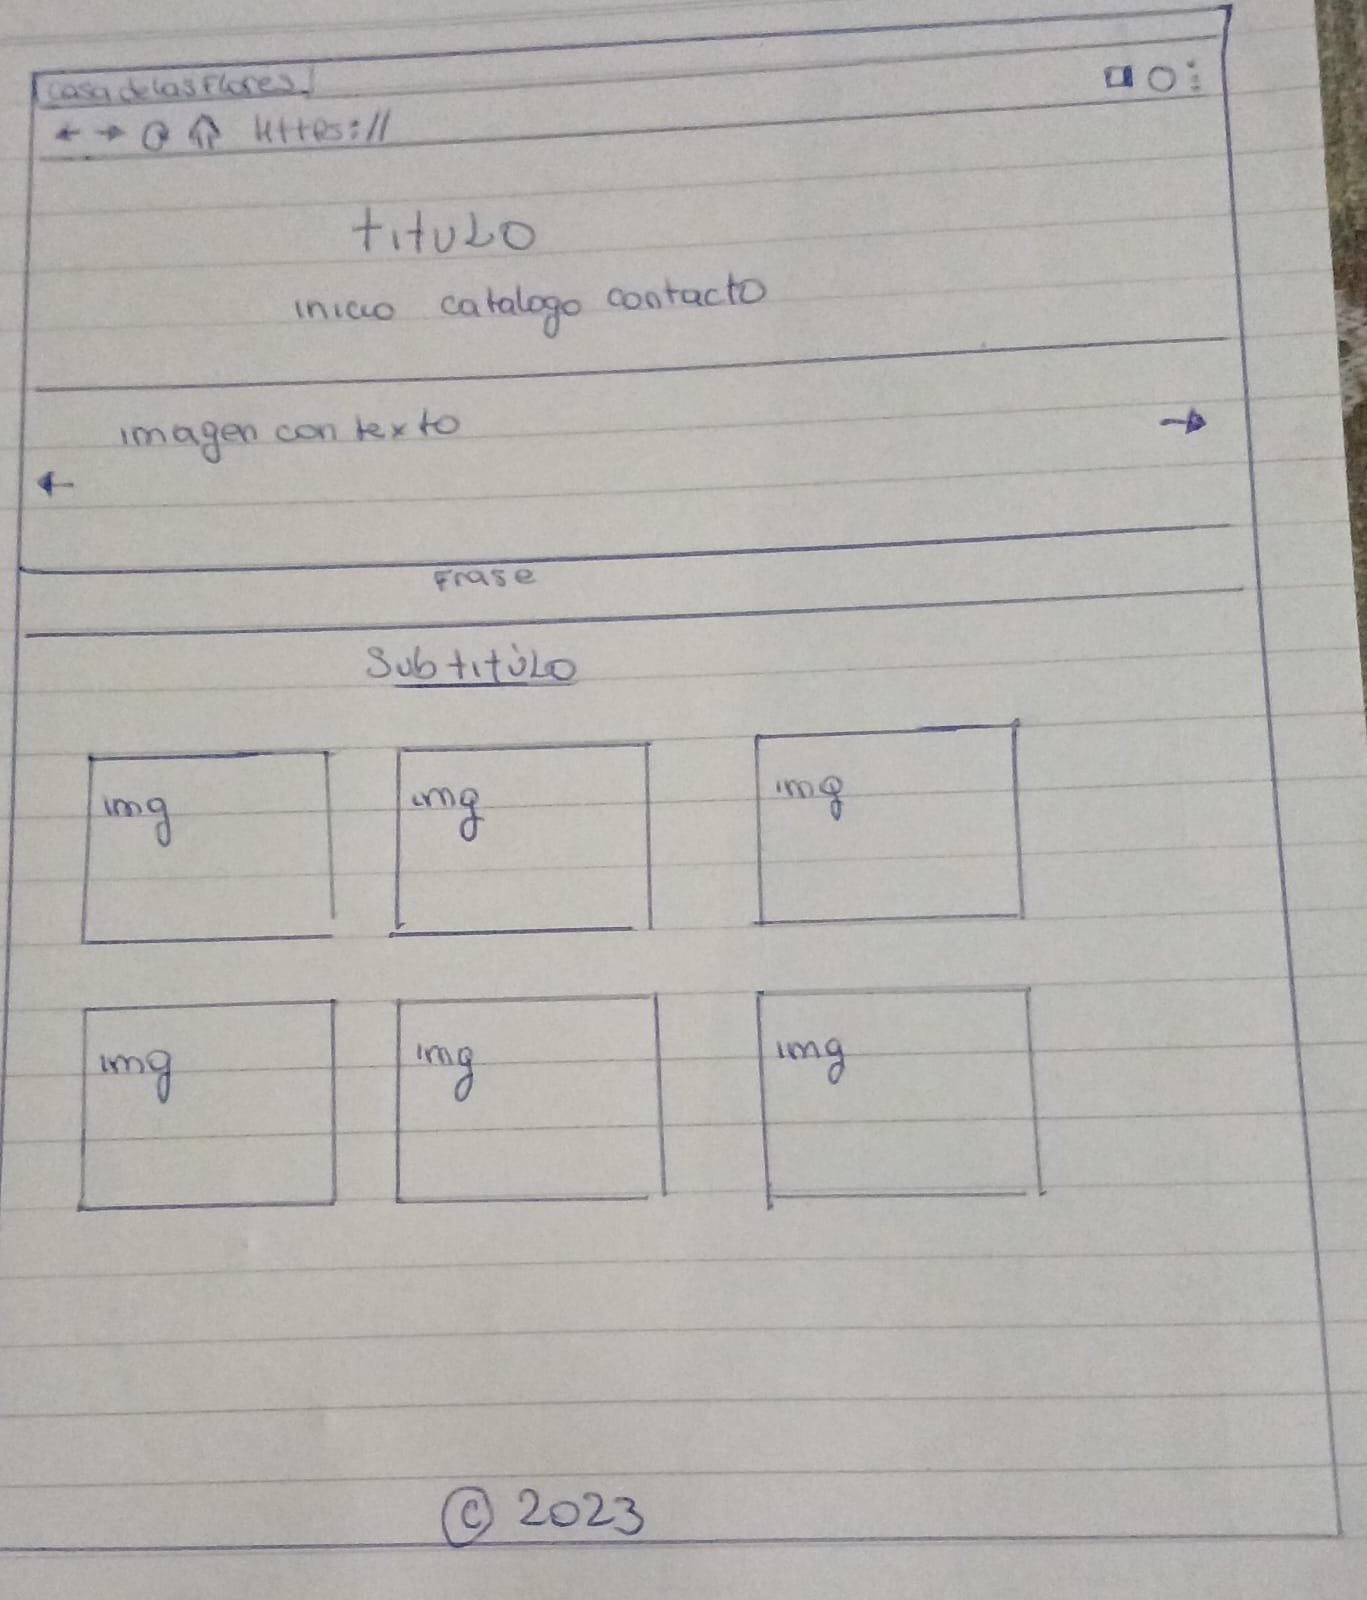 casa de las Flores
https://
titulo
inicio catalogo contacto
imagen con texto
Frase
Subtitulo
img img img
img img img
© 2023